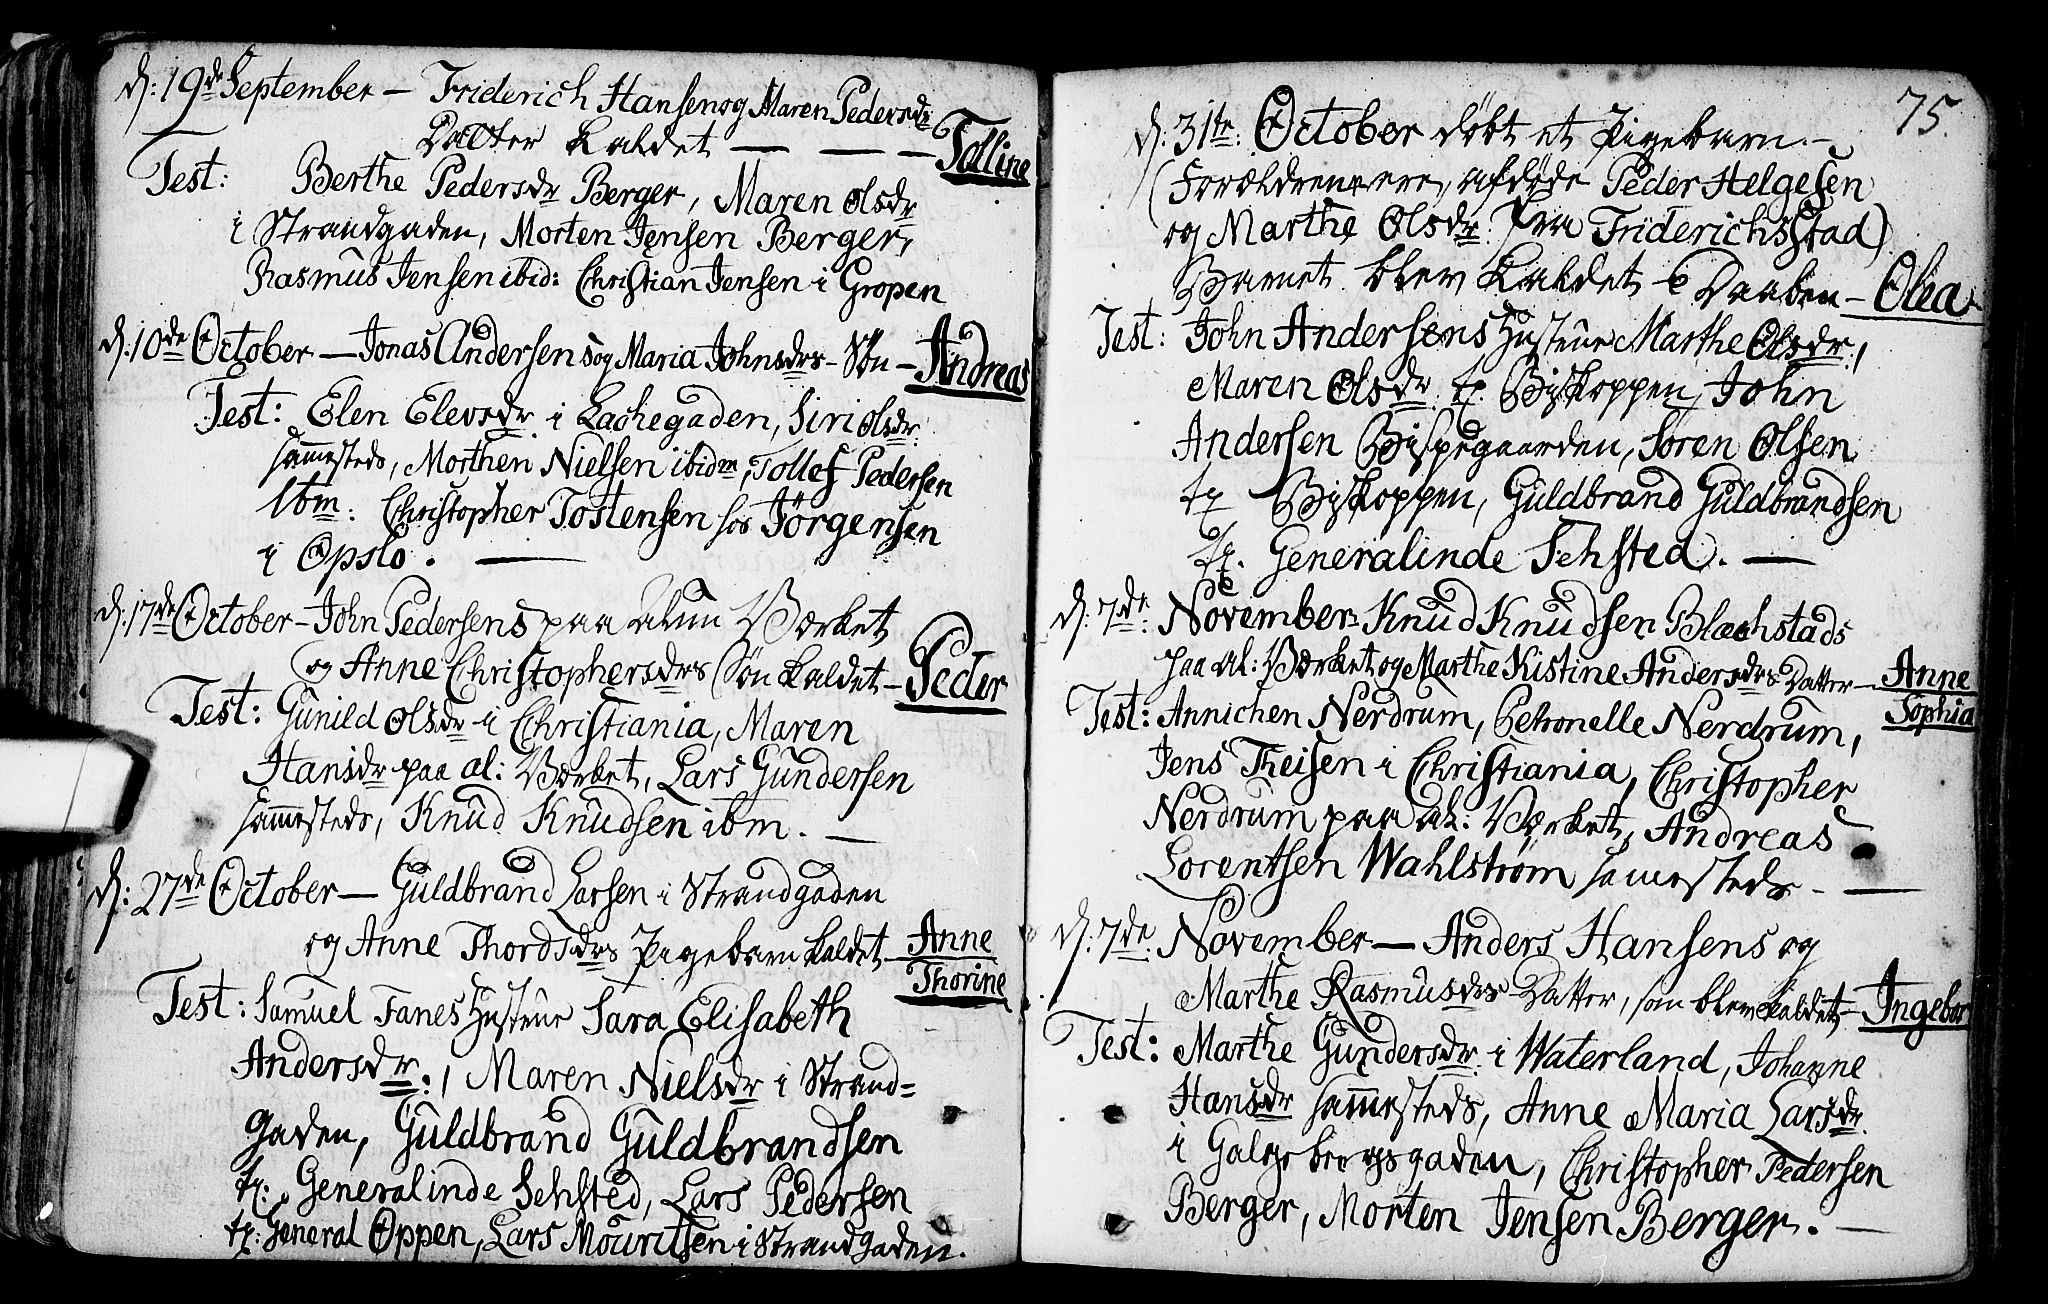 d: 19de September — Friderich Hansen og Maren Pedersdr
Datter kaldet — — — Tolline
Test: Berthe Pedersdr Berger, Maren Olsdr
i Strandgaden, Morten Jensen Berger,
Rasmus Jensen ibid: Christian Jensen i Gropen
d: 10de October — Jonas Andersens og Maria Johnsdrs Søn — Andreas
Test: Elen Elevsdr i Lachegaden, Siri Olsdr:
sammesteds, Morthen Nielsen ibidm, Tollef Pedersen
Ibm: Christopher Tostensen hos Jörgensen
i Opslo. —
d: 17de October — John Pedersens paa Alun Værket
og Anne Christophersdrs Søn kaldet — Peder
Test: Gunild Olsdr i Christiania, Maren
Hansdr paa al: Værket, Lars Gundersen
sammesteds, Knud Knudsen ibm. —
d: 27de October — Guldbrand Larsen i Strandgaden
og Anne Thordsdrs Pigebarn kaldet — Anne
Thorine
Test: Samuel Fanes Hustrue Sara Elisabeth
Andersdr:, Maren Nielsdr i Strand=
gaden, Guldbrand Guldbrandsen
tj: Generalinde Sehsted, Lars Pedersen
tj: General Oppen, Lars Mouritsen i Strandgaden.
75.
d: 31te: October döbt et Pigebarn. —
(Forældrene ere, afdøde Peder Helgesen
og Marthe Olsdr: fra Friderichsstad)
Barnet blev kaldet i Daaben — Olea
Test: John Andersens Hustrue Marthe Olsdr:,
Maren Olsdr tj. Biskoppen, John
Andersen Bispegaarden, Sören Olsen
tj Biskoppen, Guldbrand Guldbrandsen
tj. Generalinde Sehsted. —
d: 7de: November Knud Knudsen Blachstads
paa al: Værket og Marthe Kistine Andersdrs Datter — Anne
Sophia
Test: Annichen Nerdrum, Petronelle Nerdrum,
Jens Theisen i Christiania, Christopher
Nerdrum paa al: Værket, Andreas
Lorentsen Wahlstrøm samesteds. —
d: 7de November — Anders Hansens og
Marthe Rasmusdrs Datter, som blev kaldet — Ingebor
Test: Marthe Gundersdr i Waterland, Johanne
Hansdr sammesteds, Anne Maria Larsdr.
i Galgebergsgaden, Christopher Pedersen
Berger, Morten Jensen Berger. —